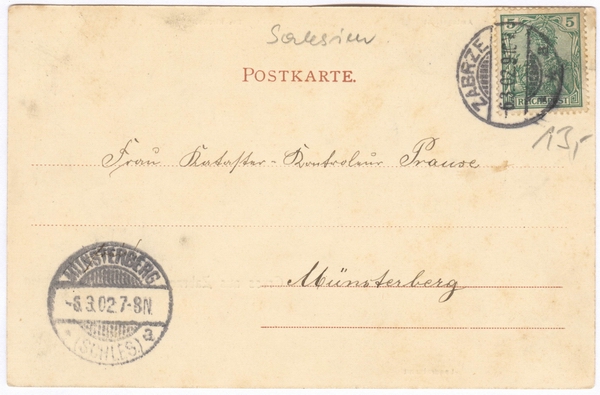 Schlesien
POSTKARTE.
5 5
REICHSPOST
ZABRZE
6.3.02
13,-
Frau Kataster-Kontroleur Prause
Münsterberg
MÜNSTERBERG
-6.3.02 7-8N.
* (SCHLES.) a